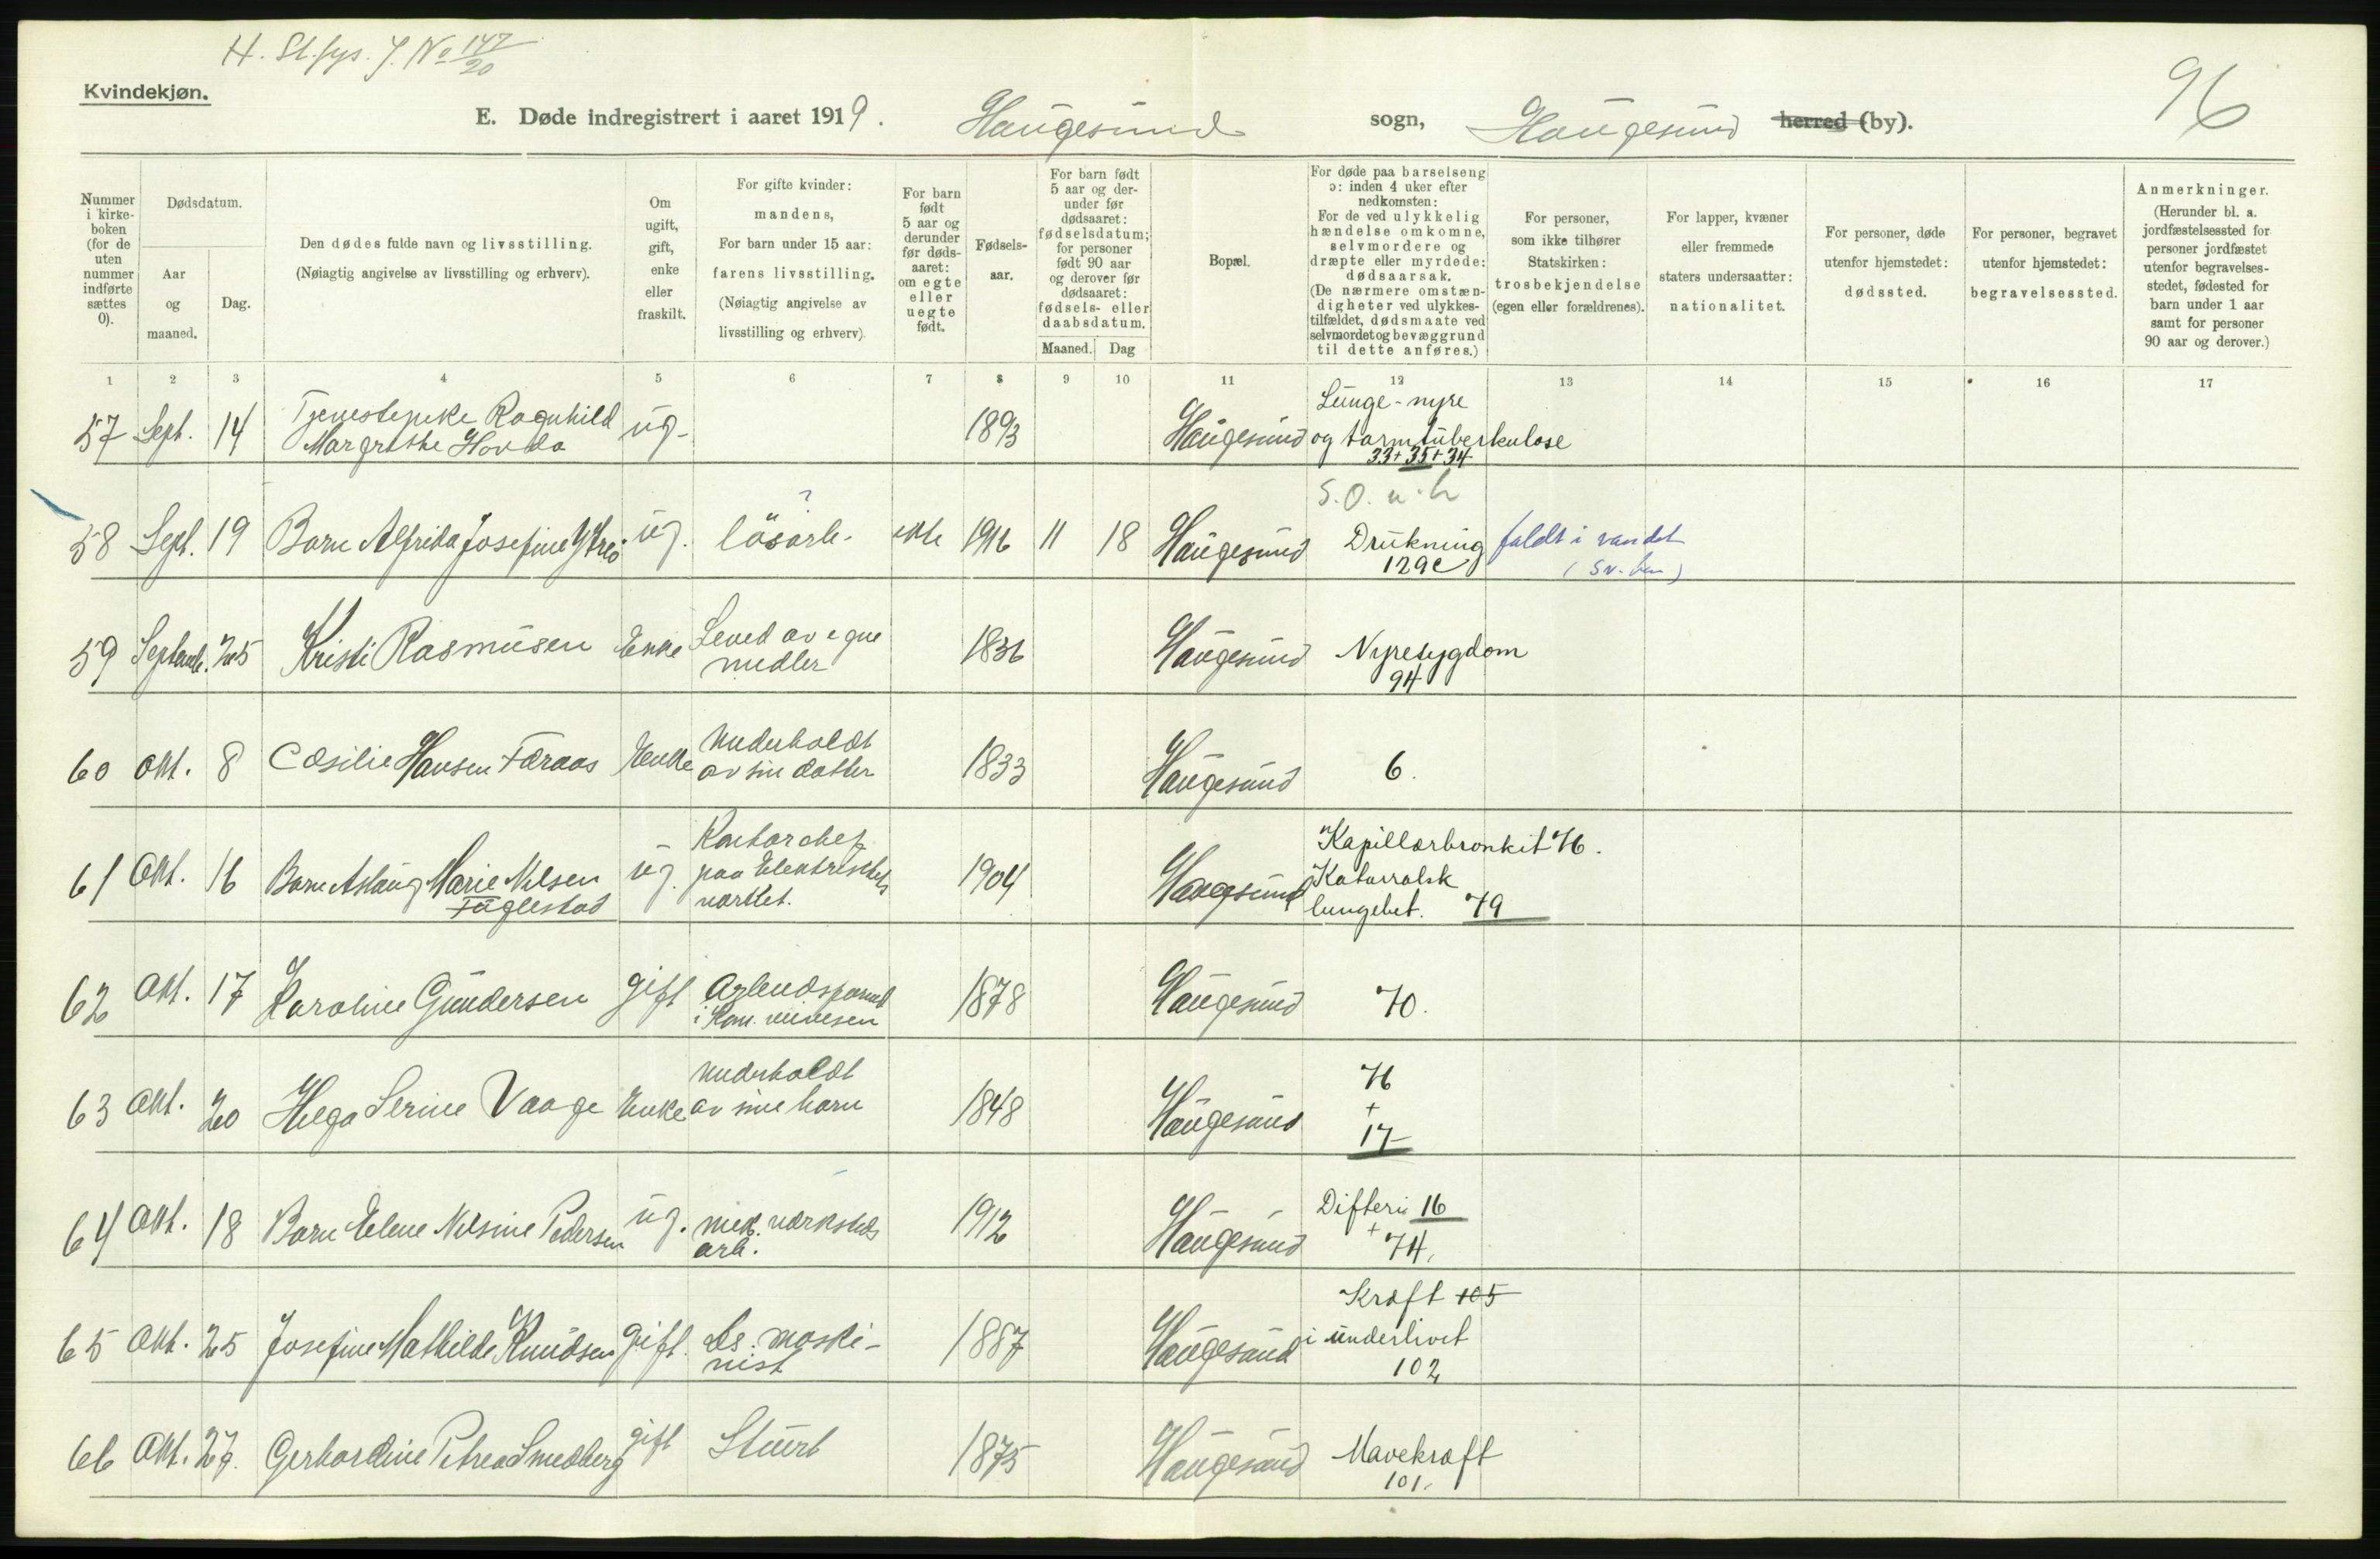 H. St.fys. J. No 147/20
96
Kvindekjøn.
E. Døde indregistrert i aaret 1919. Haugesund sogn, Haugesund herred (by).
Nummer i kirkeboken (for de uten nummer indførte sættes 0).
Dødsdatum.
Aar og maaned.
Dag.
Den dødes fulde navn og livsstilling.
(Nøiagtig angivelse av livsstilling og erhverv).
Om ugift, gift, enke eller fraskilt.
For gifte kvinder: mandens,
For barn under 15 aar: farens livsstilling.
(Nøiagtig angivelse av livsstilling og erhverv).
For barn født 5 aar og derunder før dødsaaret: om egte eller uegte født.
Fødselsaar.
For barn født 5 aar og derunder før dødsaaret: fødselsdatum; for personer født 90 aar og derover før dødsaaret: fødsels- eller daabsdatum.
Maaned. Dag
Bopæl.
For døde paa barselseng ɔ: inden 4 uker efter nedkomsten:
For de ved ulykkelig hændelse omkomne, selvmordere og dræpte eller myrdede: dødsaarsak.
(De nærmere omstændigheter ved ulykkestilfældet, dødsmaate ved selvmordet og bevæggrund til dette anføres.)
For personer, som ikke tilhører Statskirken: trosbekjendelse (egen eller forældrenes).
For lapper, kvæner eller fremmede staters undersaatter: nationalitet.
For personer, døde utenfor hjemstedet: dødssted.
For personer, begravet utenfor hjemstedet: begravelsessted.
Anmerkninger.
(Herunder bl. a. jordfæstelsessted for personer jordfæstet utenfor begravelsesstedet, fødested for barn under 1 aar samt for personer 90 aar og derover.)
1 2 3 4 5 6 7 8 9 10 11 12 13 14 15 16 17
57 Sept. 14 Tjenestepike Ragnhild Margrethe Hovda ug. 1893 Haugesund Lunge- nyre og tarmtuberkulose 33+35+34
58 Sept. 19 Barn Alfrida Josefine ug. løsarb. ? ekte 1916 11 18 Haugesund S.O. u.h Drukning 129c faldt i vandet
59 Septemb. 25 Kristi Rasmusen Enke Leved av egne midler 1836 Haugesund Nyresygdom 94
60 Okt. 8 Cæsilie Hansen Færaas Enke Underholdt av sin datter 1833 Haugesund 6.
61 Okt. 16 Barn Aslaug Marie Nilsen Fuglestad ug. Kontorchef paa Elektricitets værket. 1904 Haugesund Kapillærbronkit 76. Katarralsk lungebet. 79
62 Okt. 17 Karoline Gundersen gift Arbeidsformd i Kom. veivesen 1878 Haugesund 70.
63 Okt. 20 Helga Serine Vaage Enke Underholdt av sine barn 1848 Haugesund 76 + 17
64 Okt. 18 Barn Elene Nilsine Pedersen ug. mek. værksteds arb. 1912 Haugesund Difteri 16 + 74.
65 Okt. 25 Josefine Mathilde Knudsen gift. Ds. maskinist 1887 Haugesund Kræft 105 i underlivet 102
66 Okt. 27. Gerhardine Petrea Smedberg gift Stuert 1875 Haugesund Mavekræft 101.